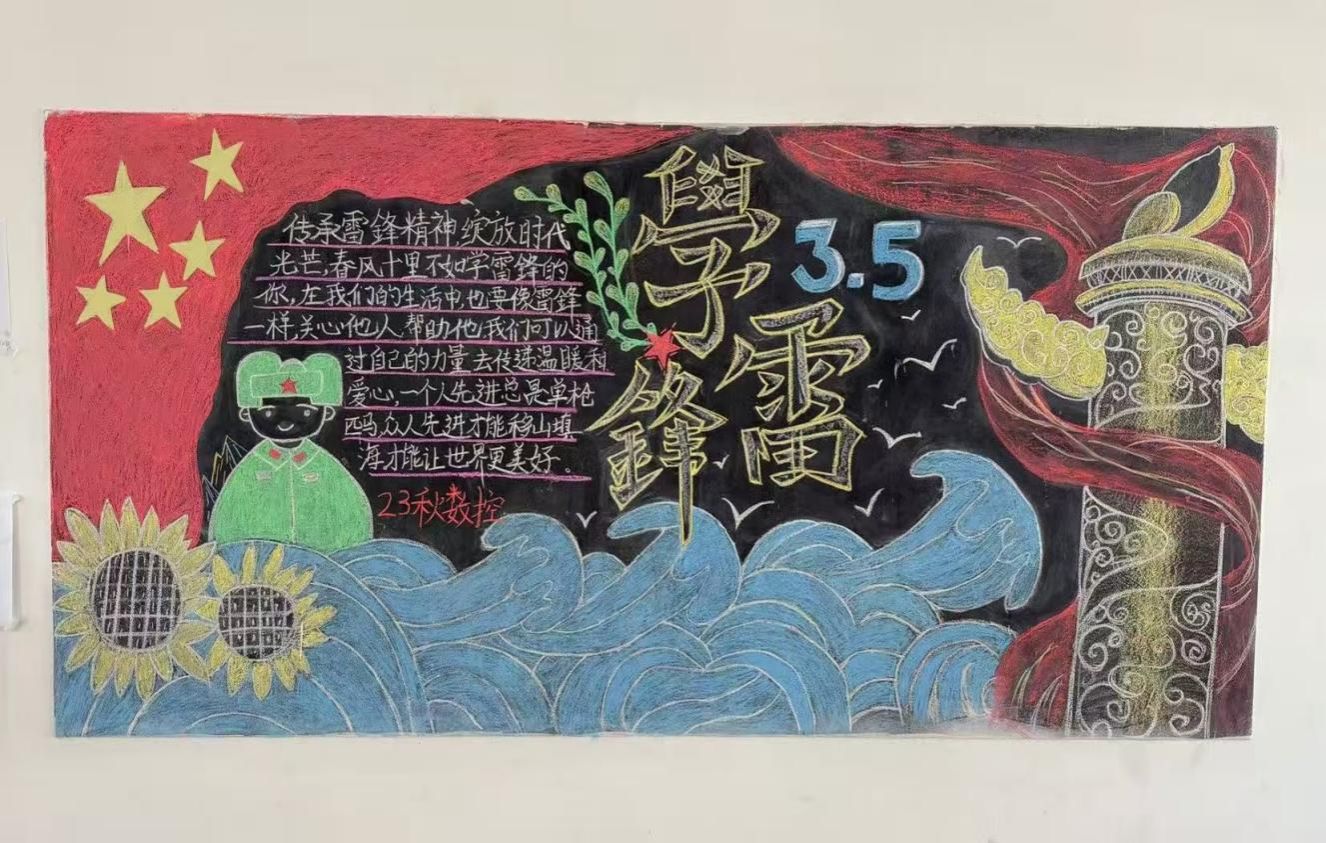 传承雷鋒精神,绽放时代
光芒,春风十里不如学雷鋒的
你,在我们的生活中,也要像雷鋒
一样,关心他人,帮助他,我们可以通
过自己的力量去传递温暖和
爱心,一个人先进总是单枪
匹马,众人先进才能移山填
海才能让世界更美好。
23秋数控
學
雷
鋒
3.5